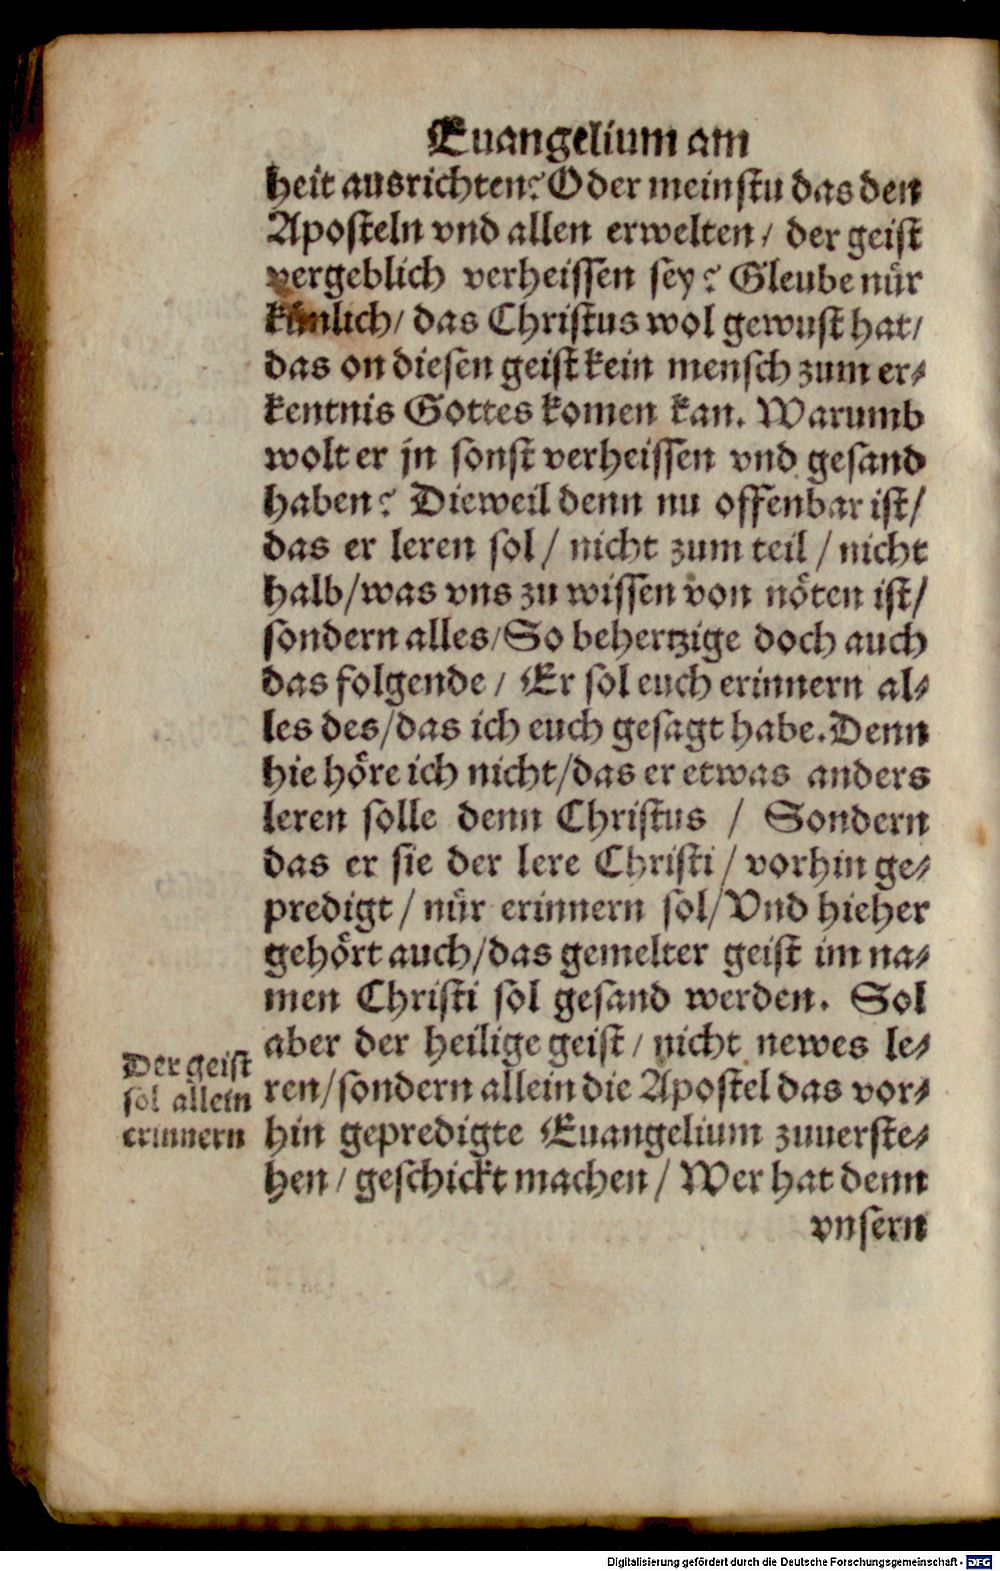 Euangelium am
heit ausrichten? Oder meinstu das den
Aposteln vnd allen erwelten / der geist
vergeblich verheissen sey? Gleube nür
künlich / das Christus wol gewust hat /
das on diesen geist kein mensch zum er⸗
kentnis Gottes komen kan. Warumb
wolt er jn sonst verheissen vnd gesand
haben? Dieweil denn nu offenbar ist /
das er leren sol / nicht zum teil / nicht
halb / was vns zu wissen von nöten ist /
sondern alles / So behertzige doch auch
das folgende / Er sol euch erinnern al⸗
les des / das ich euch gesagt habe. Denn
hie höre ich nicht / das er etwas anders
leren solle denn Christus / Sondern
das er sie der lere Christi / vorhin ge⸗
predigt / nür erinnern sol / Vnd hieher
gehört auch / das gemelter geist im na⸗
men Christi sol gesand werden. Sol
aber der heilige geist / nicht newes le⸗
ren / sondern allein die Apostel das vor⸗
hin gepredigte Euangelium zuuerste⸗
hen / geschickt machen / Wer hat denn
vnsern
Der geist
sol allein
erinnern
Digitalisierung gefördert durch die Deutsche Forschungsgemeinschaft - DFG